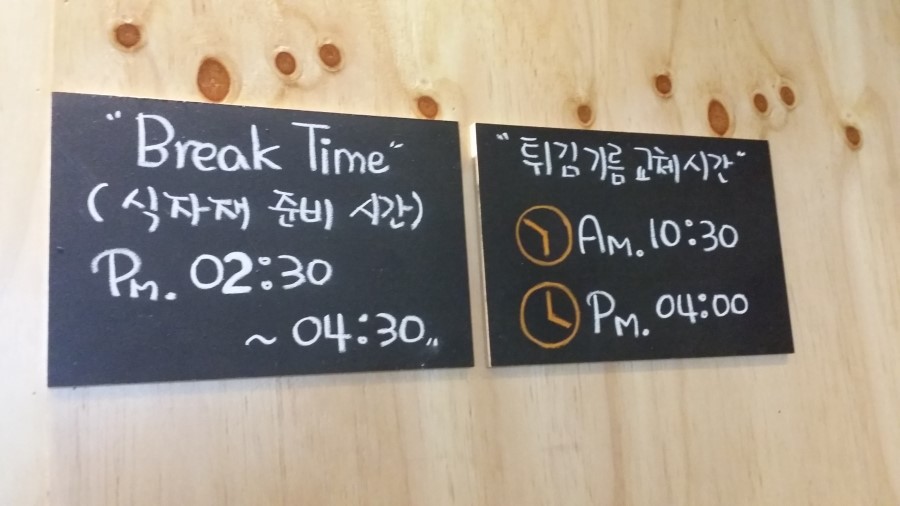 "Break Time"
(식자재 준비 시간)
Pm. 02:30
~ 04:30,,
"튀김기름 교체시간"
Am. 10:30
Pm. 04:00